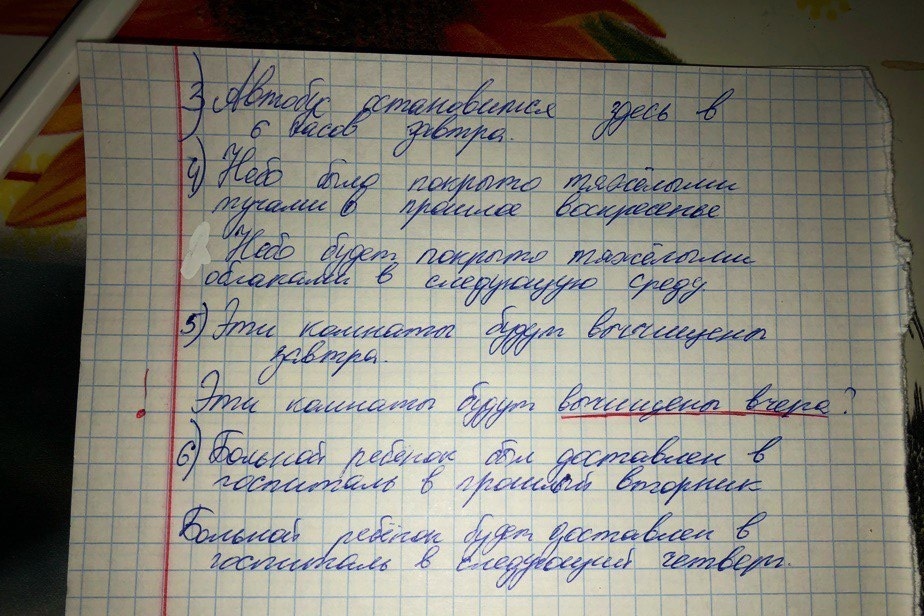 3) Автобус остановится здесь в
6 часов завтра.
4) Небо было покрыто тяжёлыми
тучами в прошлое воскресенье
Небо будет покрыто тяжёлыми
облаками в следующую среду
5) Эти комнаты будут вычищены
завтра.
! Эти комнаты будут вычищены вчера?
6) Больной ребёнок был доставлен в
госпиталь в прошлый вторник
Больной ребёнок будет доставлен в
госпиталь в следующий четверг.